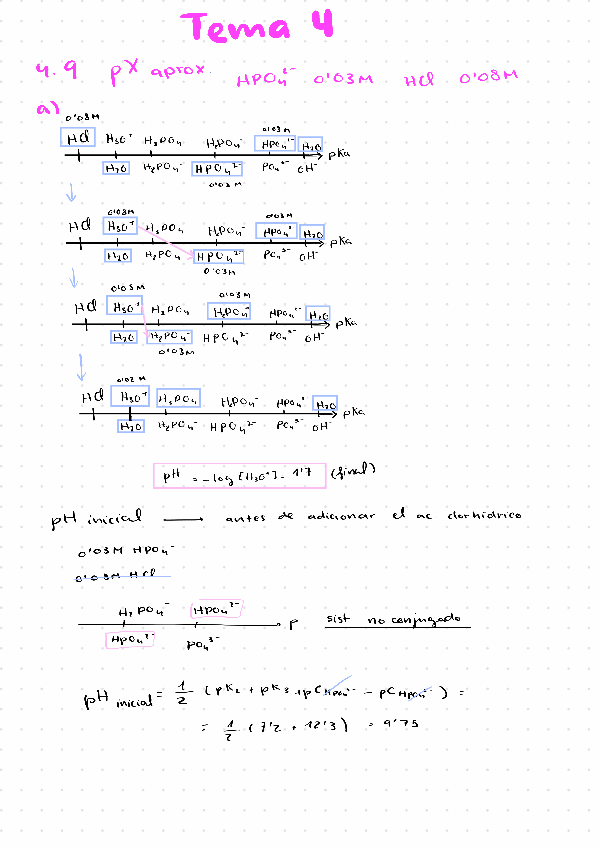 Tema 4
4.9 pX aprox. HPO₄²⁻ 0'03M HCl 0'08M
a)
0'08M
0'03M
HCl H₃O⁺ H₃PO₄ H₂PO₄⁻ HPO₄²⁻ H₂O
pKa
H₂O H₂PO₄⁻ HPO₄²⁻ PO₄³⁻ OH⁻
0'03M
0'08M 0'03M
HCl H₃O⁺ H₃PO₄ H₂PO₄⁻ HPO₄²⁻ H₂O
pKa
H₂O H₂PO₄ HPO₄²⁻ PO₄³⁻ OH⁻
0'03M
0'05M 0'03M
HCl H₃O⁺ H₃PO₄ H₂PO₄⁻ HPO₄²⁻ H₂O
pKa
H₂O H₂PO₄⁻ HPO₄²⁻ PO₄³⁻ OH⁻
0'03M
0'02 M
HCl H₃O⁺ H₃PO₄ H₂PO₄⁻ HPO₄²⁻ H₂O
pKa
H₂O H₂PO₄⁻ HPO₄²⁻ PO₄³⁻ OH⁻
pH = -log [H₃O⁺] = 1'7 (final)
pH inicial → antes de adicionar el ac clorhídrico
0'03M HPO₄⁻
0'08M HCl
H₂PO₄⁻ HPO₄²⁻
p sist no conjugado
HPO₄²⁻ PO₄³⁻
pH inicial = 1/2 (pK₂ + pK₃ + pC HPO₄²⁻ - pC HPO₄²⁻) =
= 1/2 (7'2 + 12'3) = 9'75